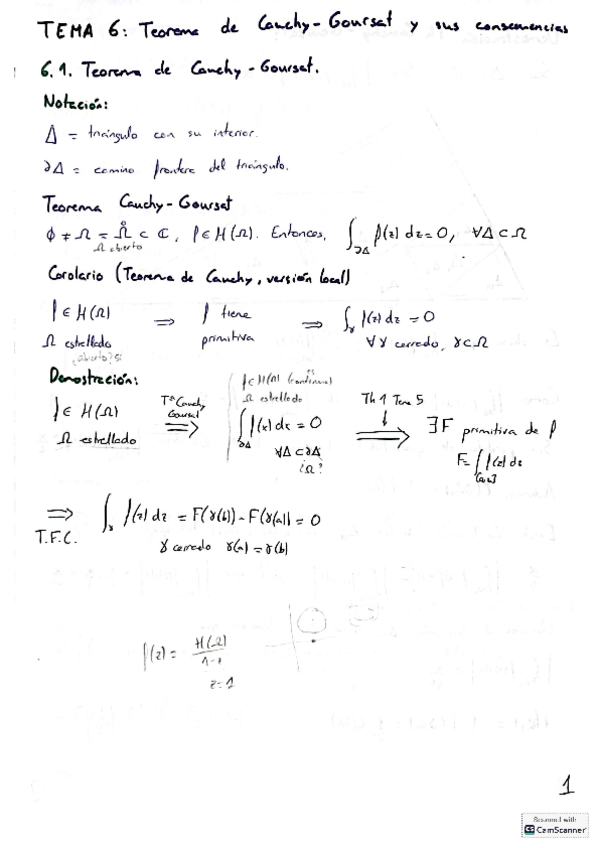 TEMA 6: Teorema de Cauchy-Goursat y sus consecuencias
6.1. Teorema de Cauchy-Goursat.
Notación:
Δ = triángulo con su interior.
∂Δ = camino frontera del triángulo.
Teorema Cauchy-Goursat
∅ ≠ Ω = Ω̊ ⊂ ℂ, f ∈ H(Ω). Entonces, ∫_∂Δ f(z) dz = 0, ∀Δ ⊂ Ω
Ω abierto
Corolario (Teorema de Cauchy, versión local)
f ∈ H(Ω) ⟹ f tiene ⟹ ∫_γ f(z) dz = 0
Ω estrellado primitiva ∀γ cerrado, γ ⊂ Ω
¿abierto? sí
Demostración:
f ∈ H(Ω) (continua)
Ω estrellado
f ∈ H(Ω) Tª Cauchy Goursat ⟹ ∫_∂Δ f(z) dz = 0 Th 1 Tema 5 ⟹ ∃F primitiva de f
Ω estrellado ∀Δ ⊂ ∂Δ F = ∫_[a,z] f(z) dz
¿Ω?
⟹ ∫_γ f(z) dz = F(γ(b)) - F(γ(a)) = 0
T.F.C. γ cerrado γ(a) = γ(b)
f(z) = H(Ω)/1-z
z=1
1
Scanned with
CS CamScanner